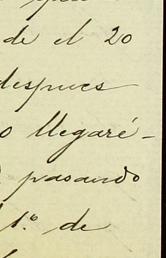 de el 20
despues
o llegaré-
pasando
1.º de